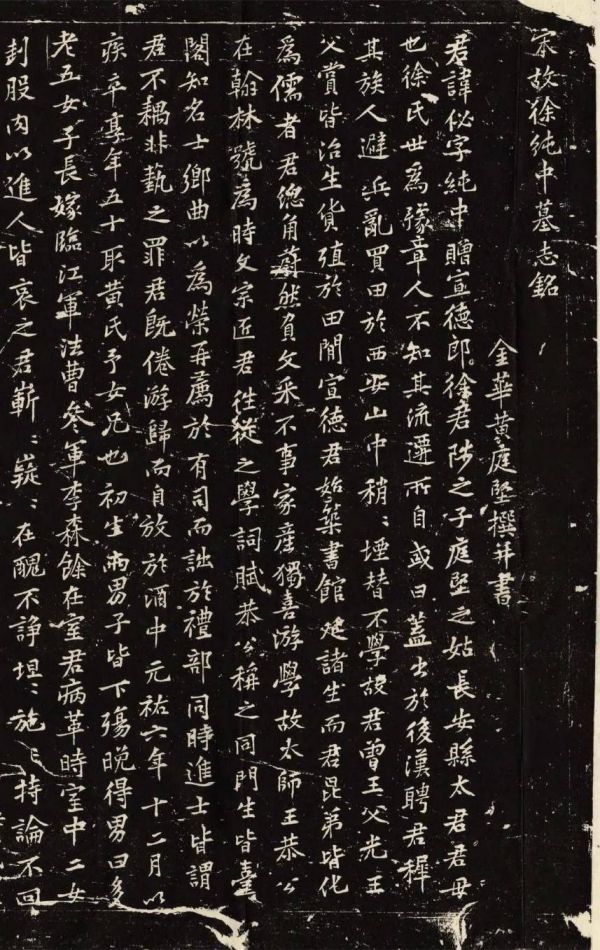 宋故徐純中墓志銘
金華黄庭堅撰并書
君諱佖字純中贈宣德郎徐君陟之子庭堅之姑長安縣太君君母
也徐氏世爲豫章人不知其流遷所自或曰蓋出於後漢聘君穉
其族人避兵亂買田於西安山中稍〻堙替不學故君曾王父光王
父賞皆治生貨殖於田閒宣德君始築書館延諸生而君昆弟皆化
爲儒者君㹅角蔚然負文采不事家產獨喜游學故太師王恭公
在翰林號爲時文宗匠君往從之學詞賦恭公稱之同門生皆臺
閣知名士鄉曲以爲榮再薦於有司而詘於禮部同時進士皆謂
君不耦非藝之罪君既倦游歸而自放於酒中元祐六年十二月以
疾卒享年五十取黄氏予女兄也初生兩男子皆下殤晚得男曰多
老五女子長嫁臨江軍法曹叅軍李森餘在室君病革時室中二女
刲股肉以進人皆哀之君嶄〻嶷〻在醜不諍坦〻施〻持論不回